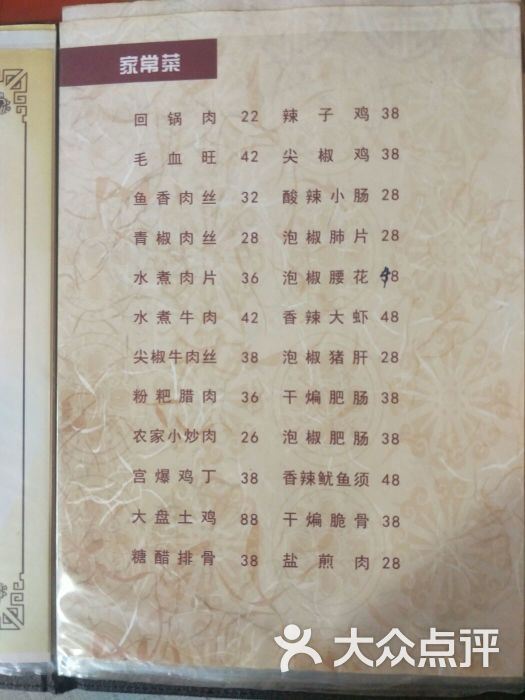 家常菜
回锅肉 22 辣子鸡 38
毛血旺 42 尖椒鸡 38
鱼香肉丝 32 酸辣小肠 28
青椒肉丝 28 泡椒肺片 28
水煮肉片 36 泡椒腰花 48
水煮牛肉 42 香辣大虾 48
尖椒牛肉丝 38 泡椒猪肝 28
粉粑腊肉 36 干煸肥肠 38
农家小炒肉 26 泡椒肥肠 38
宫爆鸡丁 38 香辣鱿鱼须 48
大盘土鸡 88 干煸脆骨 38
糖醋排骨 38 盐煎肉 28
大众点评